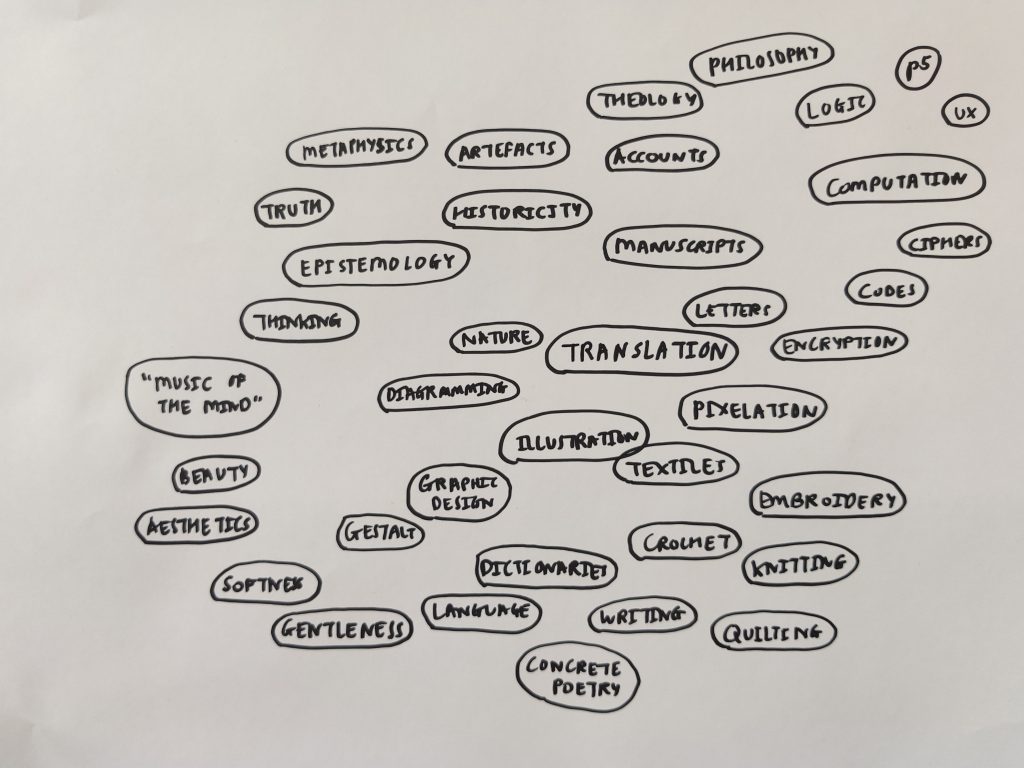 PHILOSOPHY
p5
THEOLOGY
LOGIC
UX
METAPHYSICS
ARTEFACTS
ACCOUNTS
COMPUTATION
TRUTH
HISTORICITY
MANUSCRIPTS
CIPHERS
EPISTEMOLOGY
CODES
LETTERS
THINKING
NATURE
TRANSLATION
ENCRYPTION
"MUSIC OF
THE MIND"
DIAGRAMMING
PIXELATION
ILLUSTRATION
TEXTILES
BEAUTY
GRAPHIC
DESIGN
EMBROIDERY
AESTHETICS
GESTALT
CROCHET
KNITTING
DICTIONARIES
SOFTNESS
LANGUAGE
WRITING
GENTLENESS
QUILTING
CONCRETE
POETRY